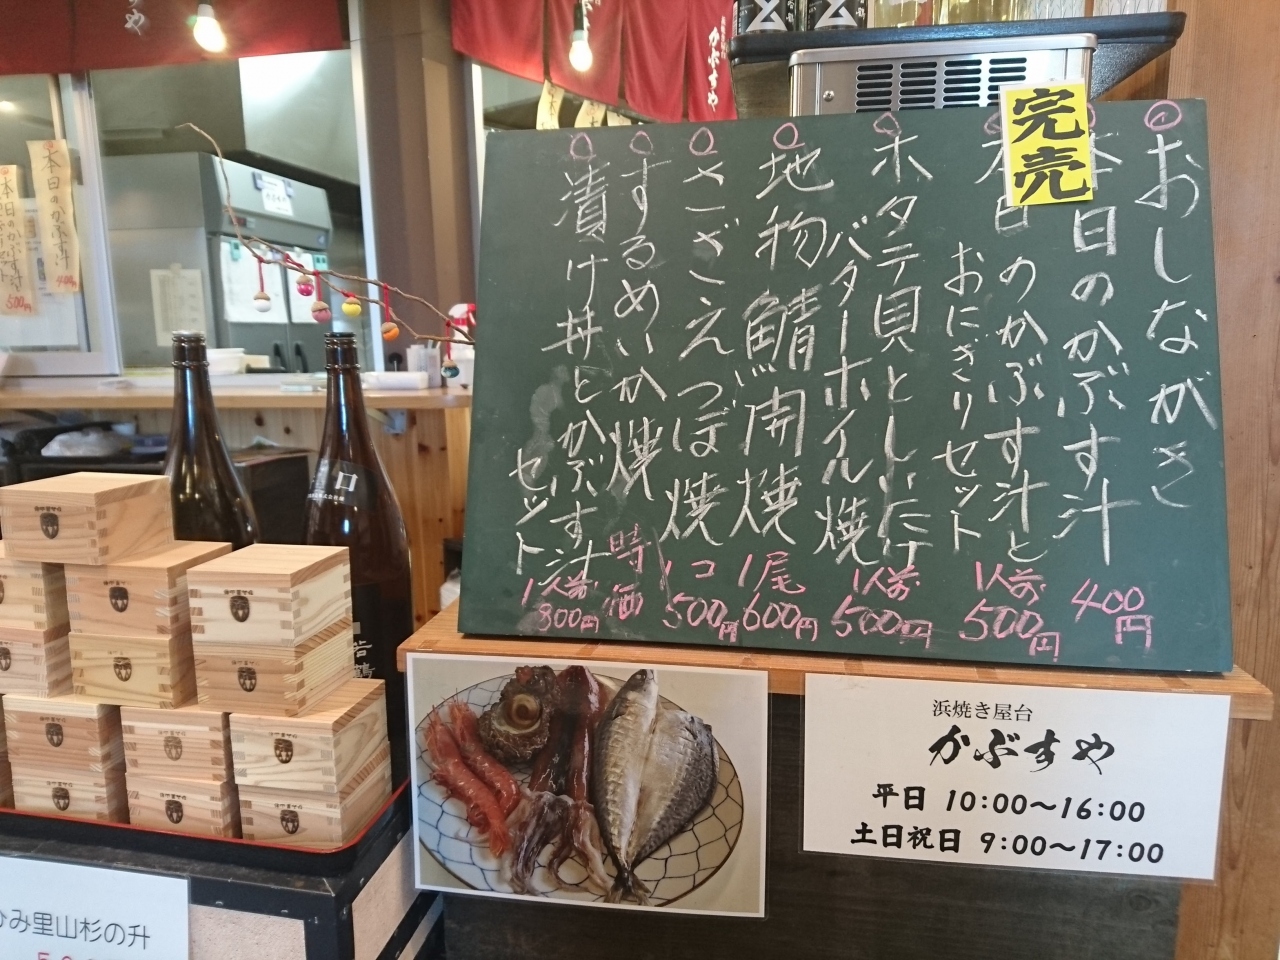 おしながき
本日のかぶす汁
400円
完売
本日のかぶす汁と
おにぎりセット
1人前
500円
ホタテ貝としいたけ
バターホイル焼
1人前
500円
地物鯖開焼
1尾
600円
さざえつぼ焼
1コ
500円
するめいか焼
時価
漬け丼とかぶす汁
セット
1人前
800円
浜焼き屋台
かぶすや
平日 10:00〜16:00
土日祝日 9:00〜17:00
かぶすや
本日のかぶす汁
400円
500円
ひみ里山杉の升